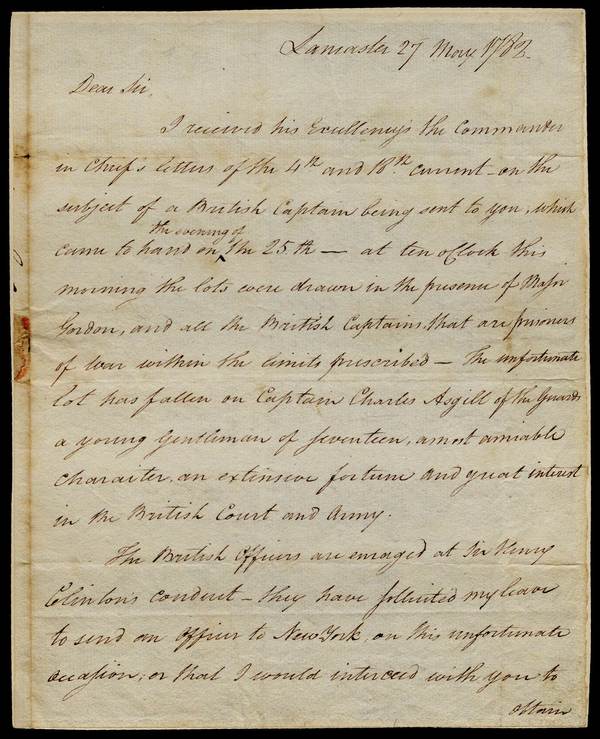 Lancaster 27 May 1782.
Dear Sir,
I received his Excellency's the Commander
in Chief's letters of the 4th and 18th current - on the
subject of a British Captain being sent to you, which
the evening of
came to hand on ^ the 25th — at ten o'Clock this
morning the lots were drawn in the presence of Major
Gordon, and all the British Captains, that are prisoners
of War within the limits prescribed — The unfortunate
lot has fallen on Captain Charles Asgill of the Guards
a young Gentleman of Seventeen, a most amiable
character, an extensive fortune and great interest
in the British Court and Army.
The British Officers are enraged at Sir Henry
Clinton's conduct - they have sollicited my leave
to send an Officer to New York, on this unfortunate
occasion; or that I would interceed with you to
obtain